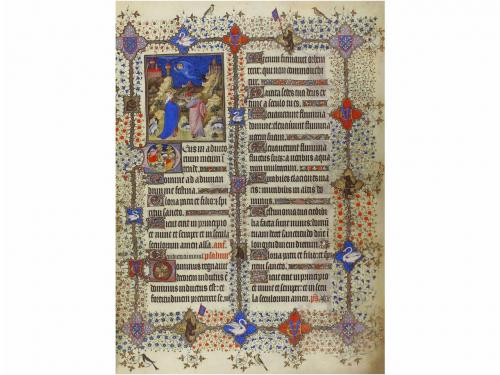 Deus in adiuto
rium meum in
tende
Domine ad adiuuan
dum me festina
Gloria patri et filio et spi
ritui sancto
Sicut erat in principio
et nunc et semper et in secula
seculorum amen alla. ant.
psalmus
Dominus regnauit
decorem indutus est: et
dominus indutus est
fortitudinem precinxit se
Etenim firmauit orbem
terre: qui non commouebi
tur
Parata sedes tua deus ex
tunc a seculo tu es
Eleuauerunt flumina
domine: eleuauerunt flumina
uocem suam
Eleuauerunt flumina
fluctus suos: a uocibus aqua
rum multarum
Mirabiles elaciones ma
ris: mirabilis in altis do
minus
Testimonia tua credibi
lia facta sunt nimis: domu
tuam decet sanctitudo domi
ne in longitudinem dierum
Gloria patri et filio et spi
ritui sancto
Sicut erat in principio
et nunc et semper et in secu
la seculorum amen ps.